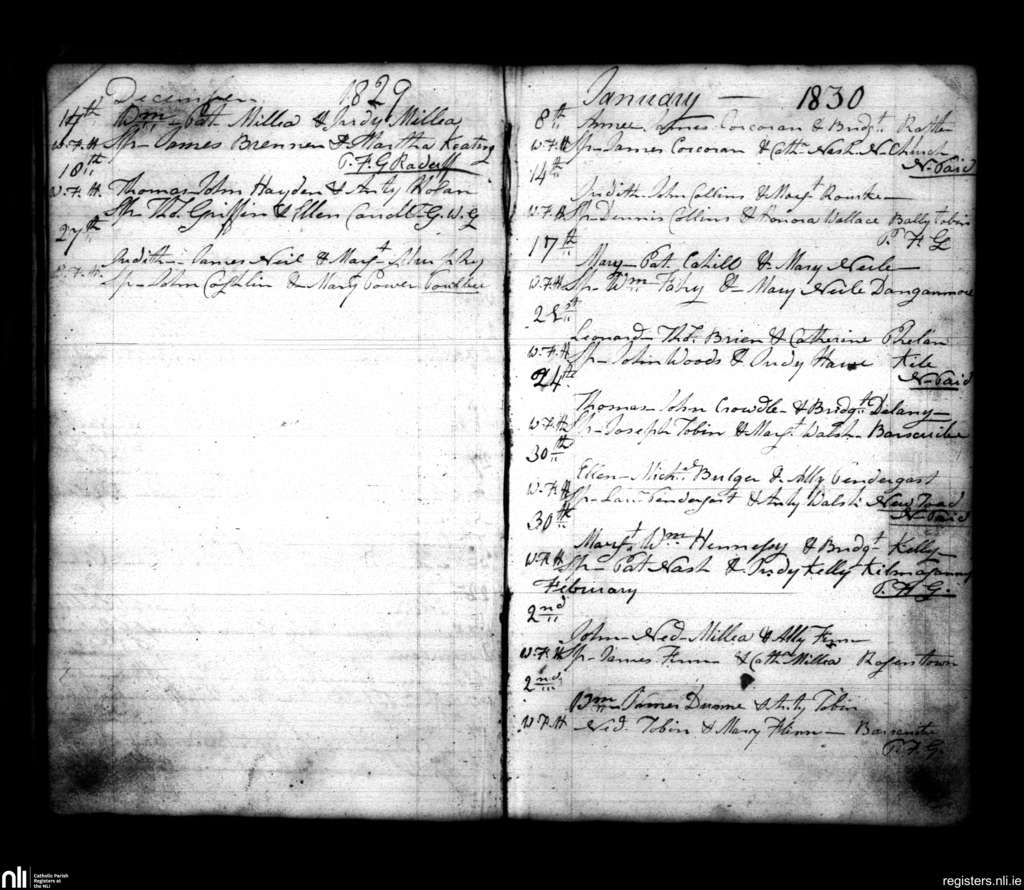 December 1829
14th Wm - Pat Millea & Judy Millea
W.F.H Sp - James Brennen & Martha Keating
18th P. F. G Raduff
W.F.H. Thomas - John Hayden & Anty Nolan
Sp. Thos. Griffin & Ellen G.W.G
27th
Judith - James Neil & Margt
W.F.H. Sp - John Coghlin & Margt Power
January — 1830
8th
James Corcoran & Bridgt
W.F.H Sp - James Corcoran & Cath. Nash N. Church
14th N. Paid
Judith John Collins & Margt Rourke -
W.F.H Sp - Dennis Collins & Honora Wallace Ballytobin
17th P. F. G
Mary - Pat. Cahill & Mary Neile -
W.F.H Sp - Wm Fahy & - Mary Neile Danganmore
Leonard - Thos. Brien & Catherine Phelan
W.F.H Sp - John Woods & Judy Hawe Kile
24th N. Paid
Thomas - John Crowdle - & Bridgt Delany -
W.F.H Sp - Joseph Tobin & Margt Walsh -
30th
Ellen - Michl Bulger & Ally Pendergast
W.F.H Sp - Laur. Pendergast & Anty Walsh New Road
30th N. Paid
Margt Wm Hennessy & Bridgt Kelly -
W.F.H Sp - Pat Nash & Judy Kelly Kilmaganny
February P. F. G.
2nd
John - Ned - Millea & Ally Finn -
W.F.H Sp - James Finn & Cath. Millea Rogerstown
2nd
Wm - James Dunne & Anty Tobin
W.F.H Ned. Tobin & Mary Flinn -
P. F. G
nli
Catholic Parish
Registers at
the NLI
registers.nli.ie